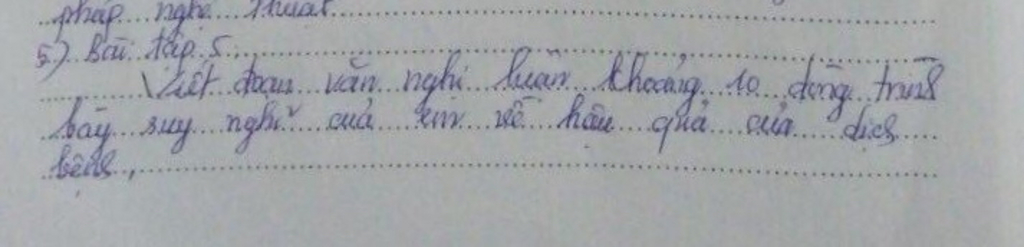 pháp nghệ thuật
5) Bài tập 5
Viết đoạn văn nghị luận khoảng 10 dòng trình
bày suy nghĩ của em về hậu quả của dịch
bệnh,